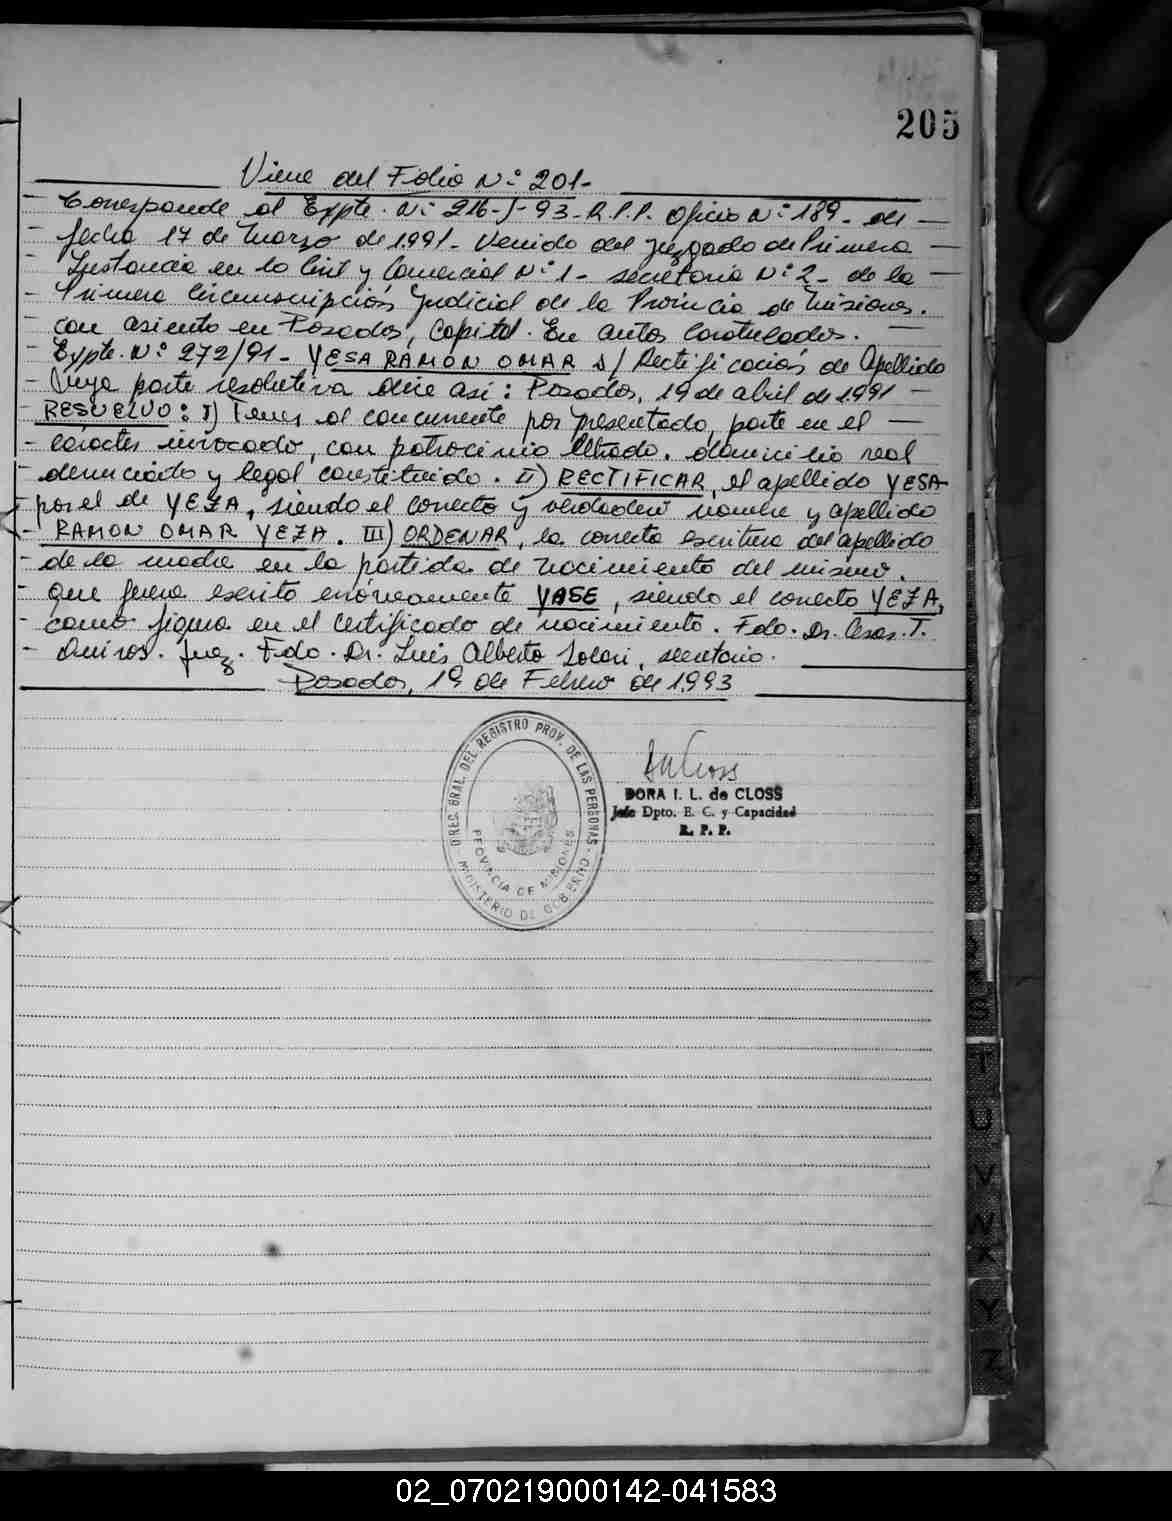 205
Viene del Folio N° 201-
Corresponde al Expte. N° 216-J-93-R.P.P. Oficio N° 189- de
fecha 17 de Marzo de 1991- Venido del Juzgado de Primera
Instancia en lo Civil y Comercial N° 1- secretaria N° 2- de la
Primera Circunscripción Judicial de la Provincia de Misiones.
con asiento en Posadas, Capital. En autos Caratulados.
Expte. N° 272/91- YESA RAMON OMAR s/ Rectificación de Apellido
Cuya parte resolutiva dice así: Posadas, 19 de abril de 1991
RESUELVO: I) Tener al concurrente por presentado, parte en el
carácter invocado, con patrocinio letrado. domicilio real
denunciado y legal constituido. II) RECTIFICAR, el apellido YESA
por el de YEZA, siendo el correcto y verdadero nombre y apellido
RAMON OMAR YEZA. III) ORDENAR, la correcta escritura del apellido
de la madre en la partida de nacimiento del mismo.
que fuera escrito erróneamente YASE, siendo el correcto YEZA,
como figura en el Certificado de nacimiento. Fdo. Dr. Cesar. T.
Quiros. Juez. Fdo. Dr. Luis Alberto Solari, secretario.
Posadas, 19 de Febrero de 1993
DIREC. GRAL. DEL REGISTRO PROV. DE LAS PERSONAS
PROVINCIA DE MISIONES
MINISTERIO DE GOBIERNO
DORA I. L. de CLOSS
Jefe Dpto. E. C. y Capacidad
R. P. P.
S
T
U
V
W
X
Y
Z
02_070219000142-041583